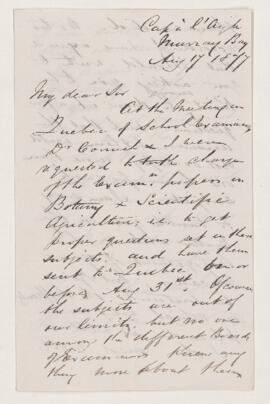 Cap à l'Aigle
Murray Bay
Aug 17 1877
My dear Sir
At the Meeting in
Quebec of School Examiners
Dr Cornish & I were
requested to take charge
of the Exam.n papers in
Botany & Scientific
Agriculture, i.e. to get
proper questions set in these
subjects and have them
sent to Quebec on or
before Aug 31st. Of course
the subjects are out of
our limits, but no one
among the different Boards
of Examiners knew any
thing more about them